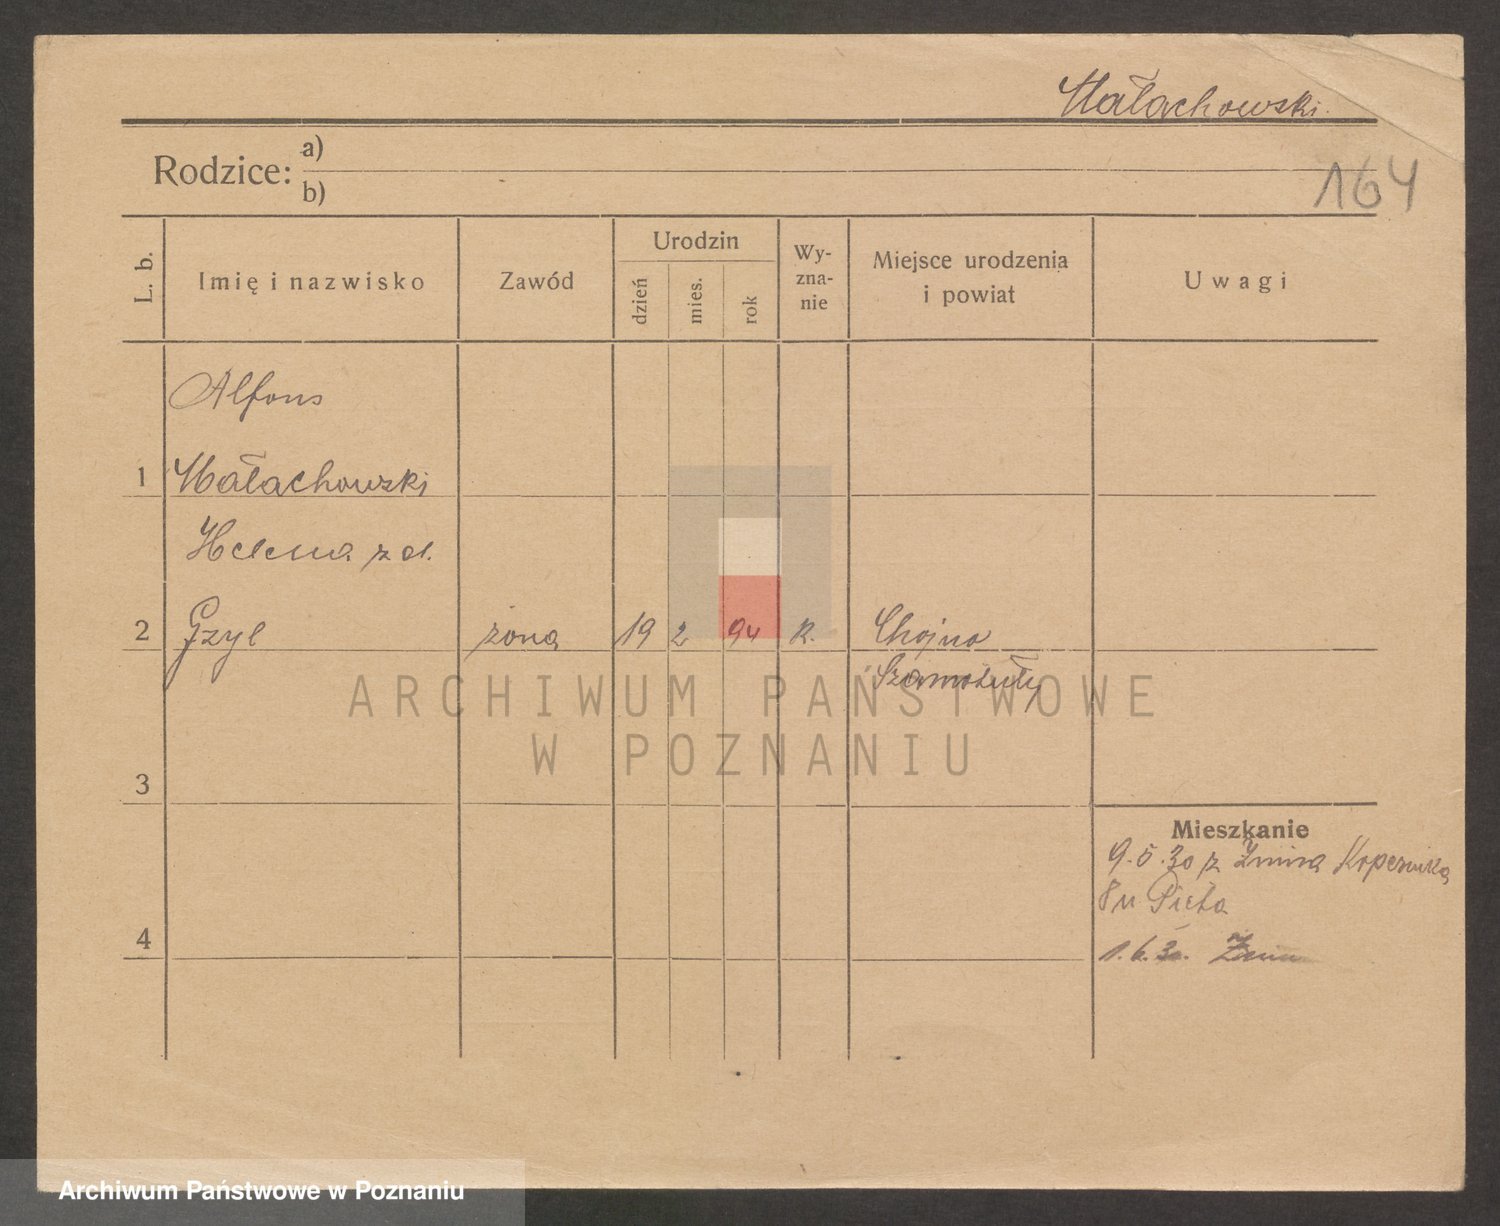 Małachowski.
164
Rodzice: a)
b)
L. b.
Imię i nazwisko
Zawód
Urodzin
dzień
mies.
rok
Wy-
zna-
nie
Miejsce urodzenia
i powiat
Uwagi
Alfons
1 Małachowski
Helena z d.
2 Gzyl żona 19 2 94 K. Chojno
Szamotuły
ARCHIWUM PAŃSTWOWE
W POZNANIU
3
Mieszkanie
9.5.30 z Żnina Kopernika
8 u Pieta
4
1.6.30.
Archiwum Państwowe w Poznaniu